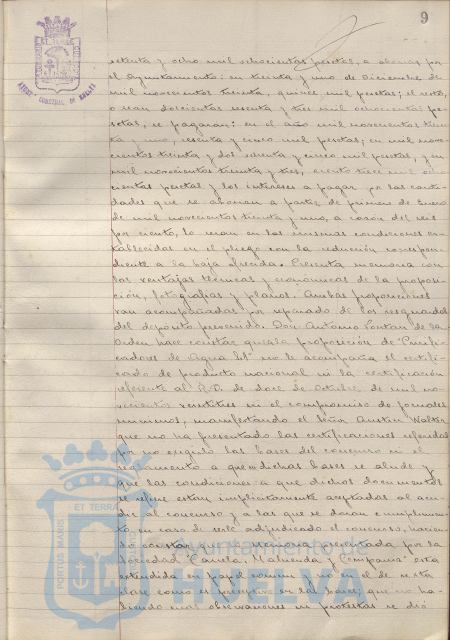 9
setenta y ocho mil ochocientas pesetas, a abonar por
el Ayuntamiento: en treinta y uno de Diciembre de
mil novecientos treinta, quince mil pesetas; el resto,
o sean doscientas sesenta y tres mil ochocientas pe-
setas, se pagaran: en el año mil novecientos trein-
ta y uno, sesenta y cinco mil pesetas; en mil nove-
cientos treinta y dos y cinco mil pesetas, y en
mil novecientos treinta y tres, ciento trece mil ocho-
cientas pesetas y los intereses a pagar por las canti-
dades que se abonan a partir de primero de Enero
de mil novecientos treinta y uno, a razon del seis
por ciento, lo sean en las mismas condiciones es-
tablecidas en el pliego con la reducción correspon-
diente a la baja ofrecida. Presenta memoria con
las ventajas técnicas y económicas de la proposi-
ción, fotografias y planos. Ambas proposiciones
van acompañadas por separado de los resguardos
del depósito prevenido. Don Antonio de la
Orden hace constar que a la proposición de "Purifi-
cadores de Agua no le acompaña el certifi-
cado de producto nacional ni la certificación
referente al R.D. de doce de Octubre de mil no-
vecientos veintitres ni el compromiso de jornales
minimos; manifestando el Señor Austin
que no ha presentado las certificaciones referidas
por no exigirlo las bases del concurso ni el
reglamento a que dichas bases se alude y
que las condiciones a que dichos documentos
se refiere estan implícitamente aceptadas al acu-
dir al concurso y a las que se daran cumplimien-
to, en caso de serle adjudicado el concurso, hacien-
do constar memoria presentada por la
Sociedad "Canela, y Compañia" está
extendida en papel comun y no en el de sexta
clase como es preceptivo en las bases; que no ha-
biendo mas observaciones ni protestas se dió
PORTUS MARIS
ET TERRAE
CUSTODIA
Ayuntamiento de
HUELVA